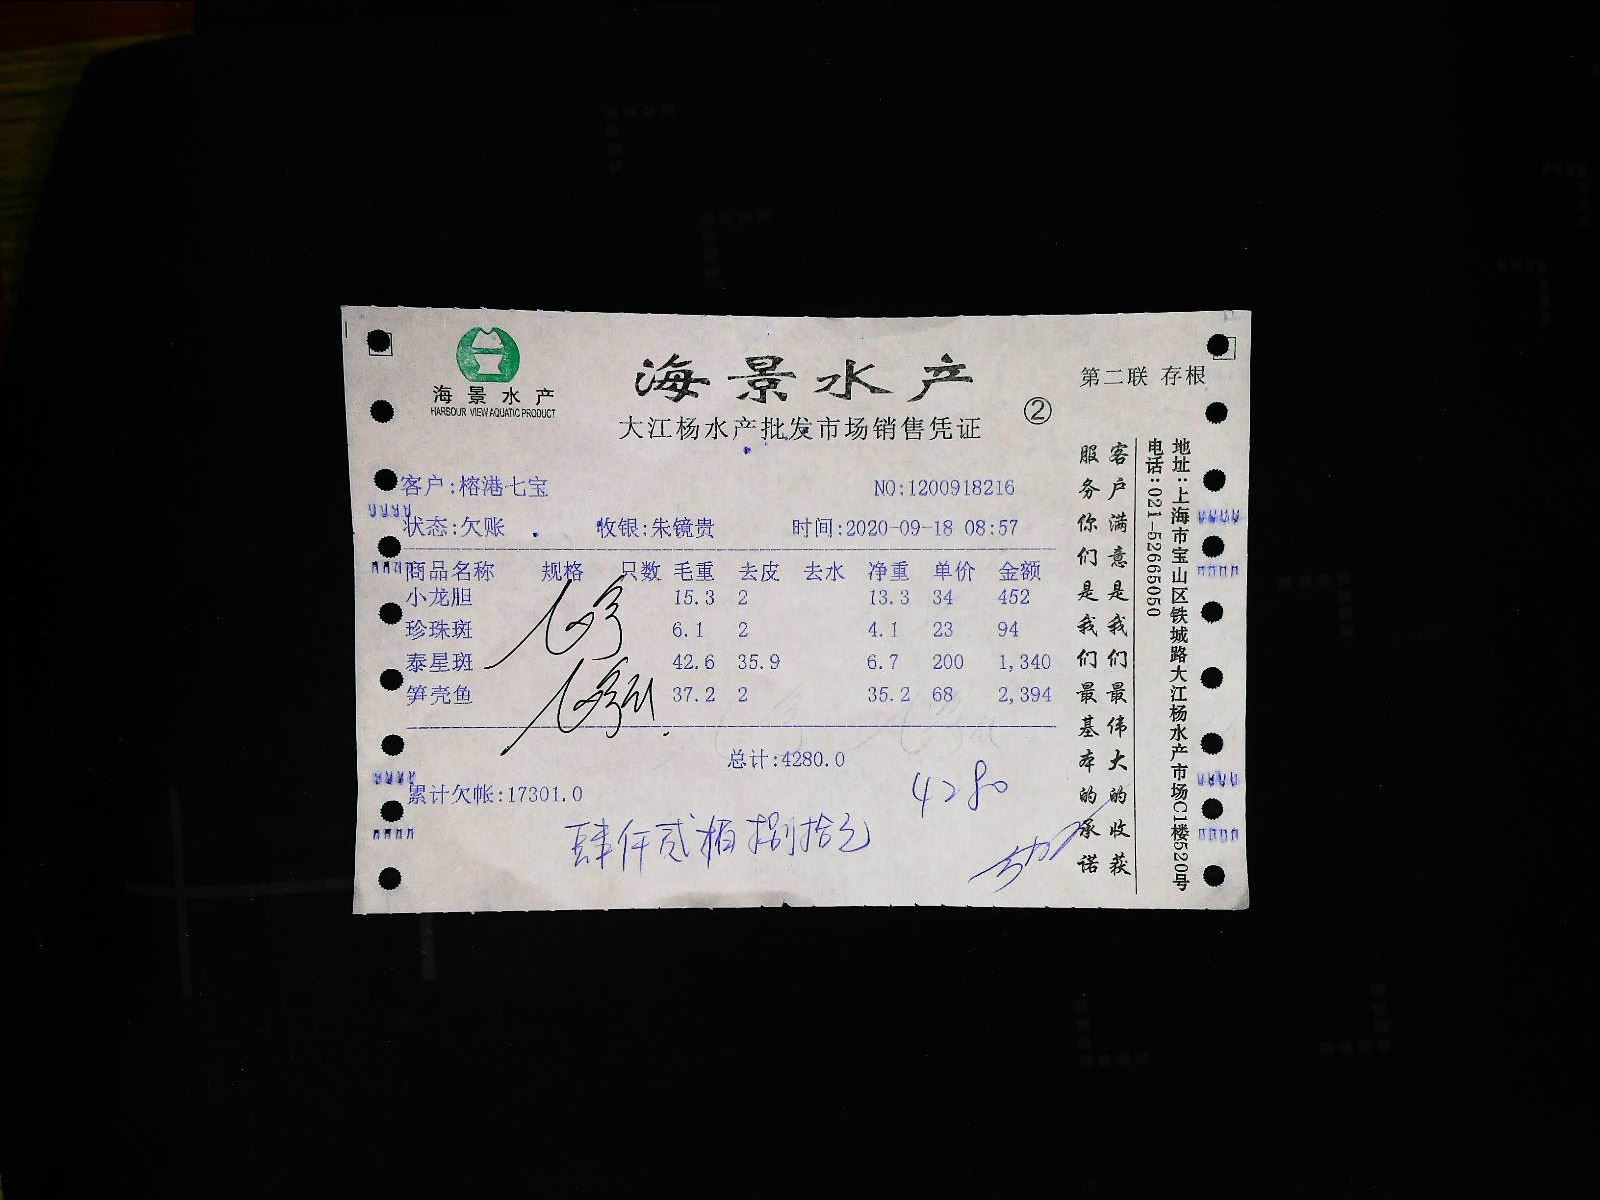 海景水产
HARBOUR VIEW AQUATIC PRODUCT
海景水产
大江杨水产批发市场销售凭证
②
第二联 存根
客户:榕港七宝 NO:1200918216
状态:欠账 收银:朱镜贵 时间:2020-09-18 08:57
商品名称 规格 只数 毛重 去皮 去水 净重 单价 金额
小龙胆 15.3 2 13.3 34 452
珍珠斑 6.1 2 4.1 23 94
泰星斑 42.6 35.9 6.7 200 1,340
笋壳鱼 37.2 2 35.2 68 2,394
总计:4280.0
累计欠帐:17301.0
4280
肆仟贰佰捌拾元
客户满意是我们最伟大的收获
服务你们是我们最基本的承诺
地址:上海市宝山区铁城路大江杨水产市场C1楼520号
电话:021-52665050